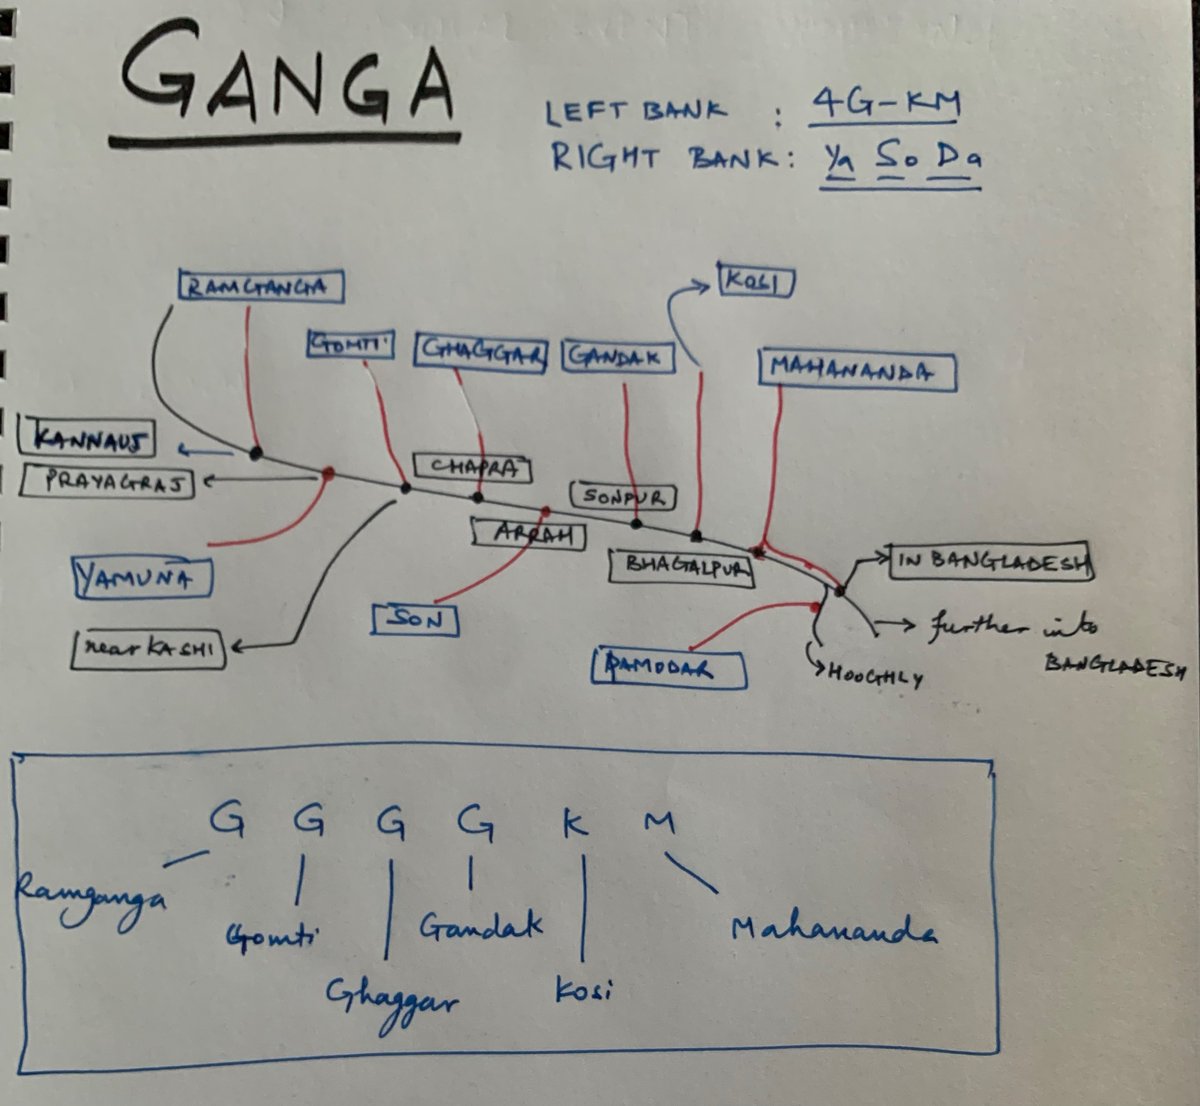 GANGA
LEFT BANK : 4G-KM
RIGHT BANK: Ya So Da
RAMGANGA
KOSI
GOMTI
GHAGGAR
GANDAK
MAHANANDA
KANNAUJ
PRAYAGRAJ
CHAPRA
SONPUR
ARRAH
BHAGALPUR
IN BANGLADESH
YAMUNA
SON
near KASHI
DAMODAR
HOOGHLY
further into
BANGLADESH
G G G G K M
Ramganga
Gomti
Gandak
Mahananda
Ghaggar
Kosi